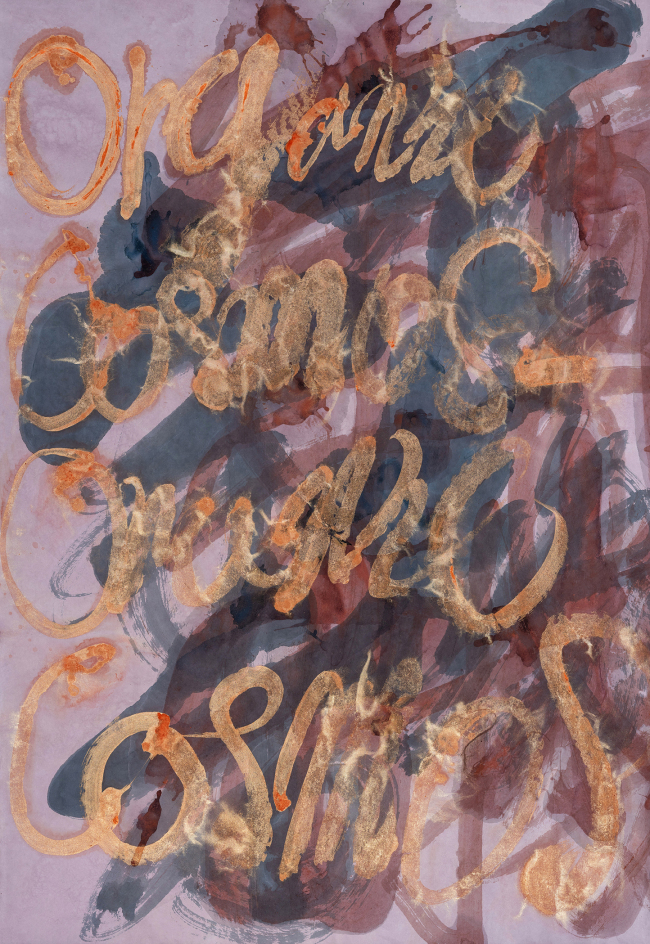 Organic
Cosmic
Organic
Cosmos